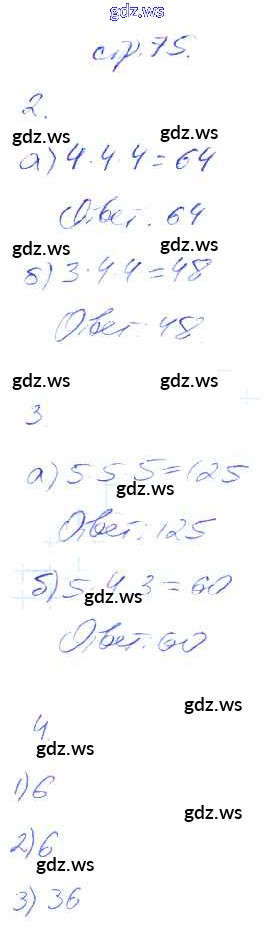 gdz.ws
стр. 75.
2.
gdz.ws gdz.ws
а) 4·4·4=64
Ответ: 64
gdz.ws
б) 3·4·4=48
Ответ: 48.
gdz.ws gdz.ws
3.
а) 5 5 5=125
gdz.ws
Ответ: 125
б) 5·4 3=60
gdz.ws
Ответ: 60
gdz.ws
4.
gdz.ws
1) 6
gdz.ws
2) 6
gdz.ws
3) 36